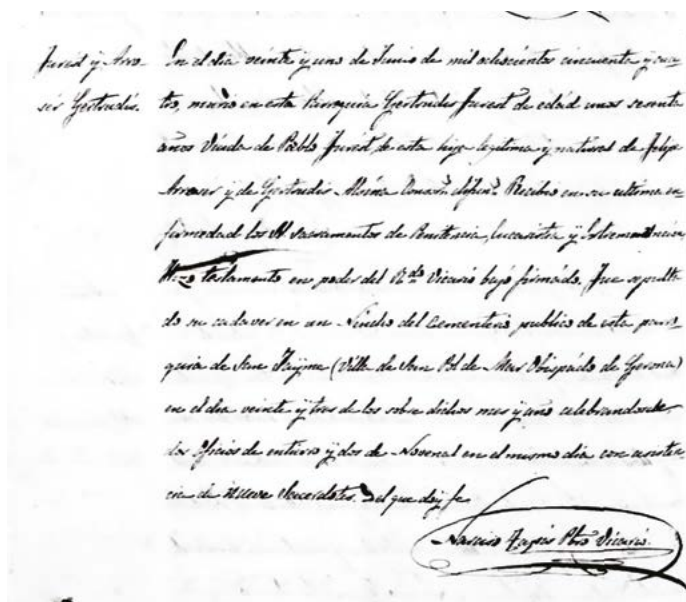 Jurest y Arro-
ser Gertrudis.
En el dia veinte y uno de Junio de mil ochocientos cincuenta y cua-
tro, murió en esta Parroquia Gertrudis Jurest de edad unos sesenta
años Viuda de Pablo Jurest, de esta hija legitima y natural de Felipe
Arroser y de Gertrudis Alsina Consor.s difun.s Recibio en su ultima en-
firmedad los St sacramentos de Penitencia, Eucaristia y Extremauncion,
Hizo testamento en poder del R.do Vicario bajo firmado. Fue sepulta-
do su cadaver en un Nincho del Cementerio publico de esta parro-
quia de San Jayme (Villa de San Pol de Mar Obispado de Gerona)
en el dia veinte y tres de los sobre dichos mes y año celebrandose
los oficios de entierro y dos de Novenal en el mismo dia con asisten-
cia de nueve Sacerdotes. Del que doy fe
Narciso Pbro Vicario.